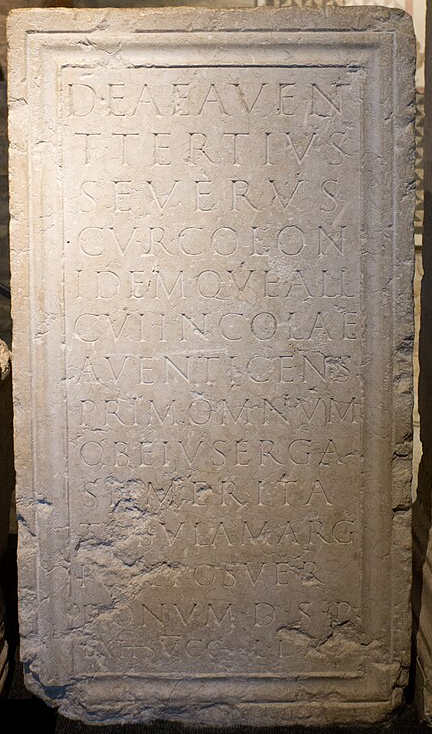 DEAE AVEN
T TERTIVS
SEVERVS
CVR COLON
IDEMQVE ALL
CVI INCOLAE
AVENTICENS
PRIM OMNVM
OB EIVS ERGA
MERITA
MARG
DONVM D S P